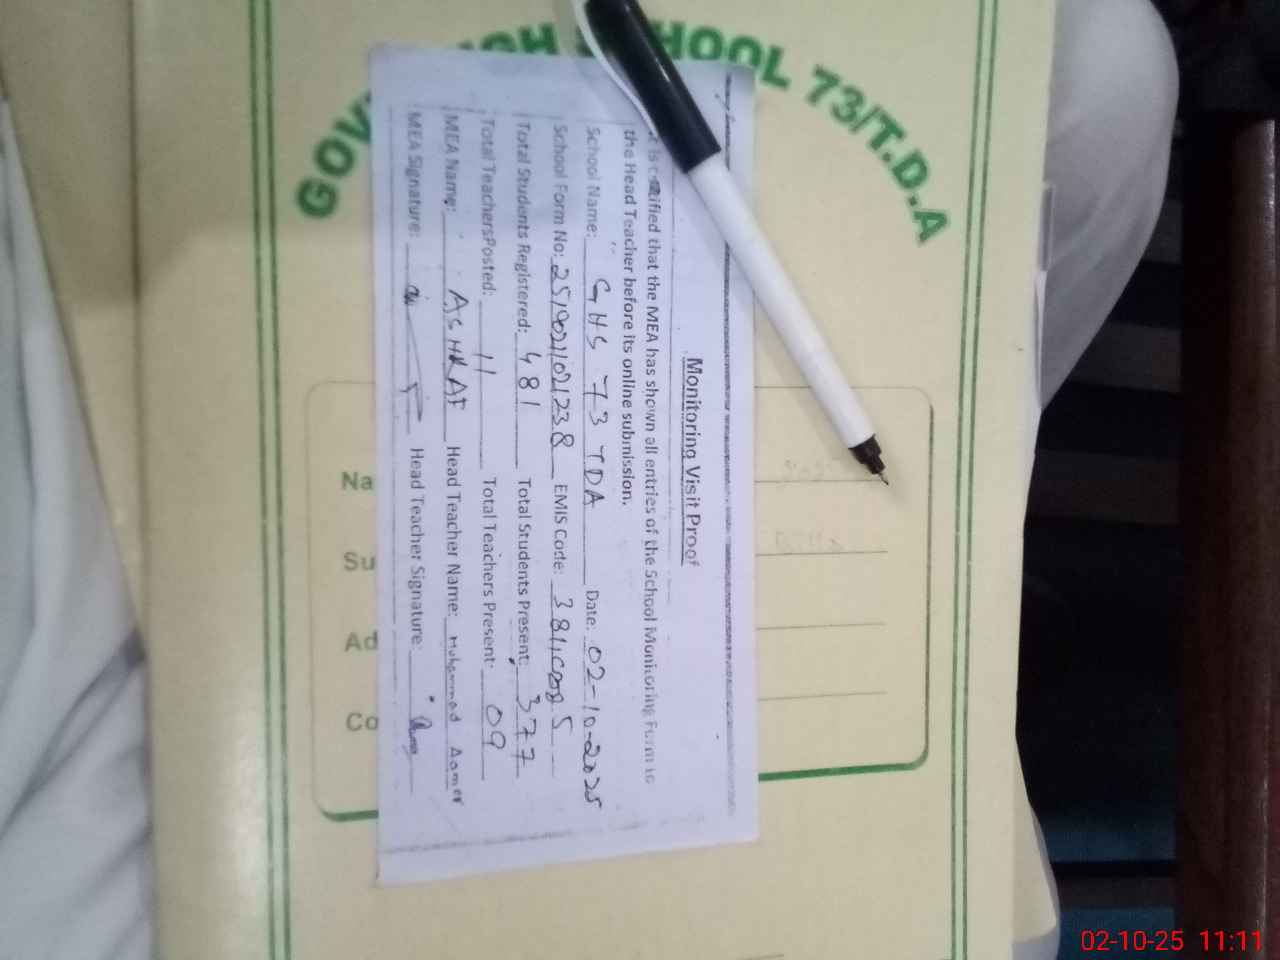 HOOL 73/T.D.A
Monitoring Visit Proof
that the MEA has shown all entries of the School Monitoring Form to
the Head Teacher before its online submission.
School Name: GHS 73 TDA Date: 02-10-2025
School Form No: EMIS Code:
Total Students Registered: 481 Total Students Present: 377
Total TeachersPosted: 11 Total Teachers Present: 09
MEA Name: ASHRAF Head Teacher Name: Muhammad Aamer
MEA Signature: Head Teacher Signature:
Na
Su
Ad
Co
02-10-25 11:11